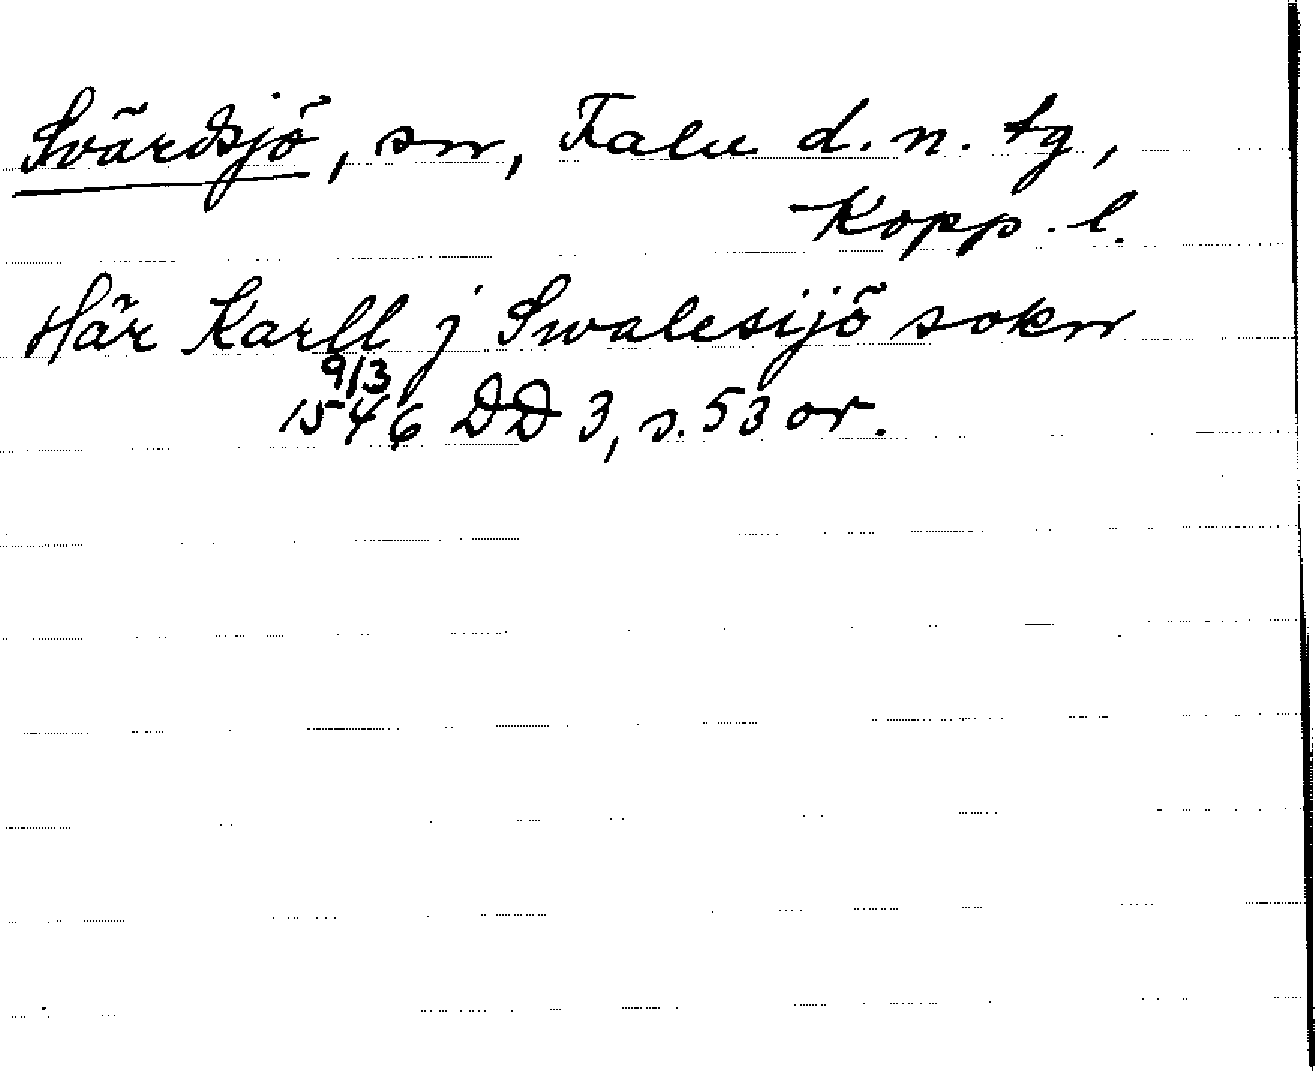 Svärdsjö, sn, Falu d. n. tg,
Kopp. l.
Här Karll j Swalesijö sokn
9/3
1546 DD 3, s. 53 or.